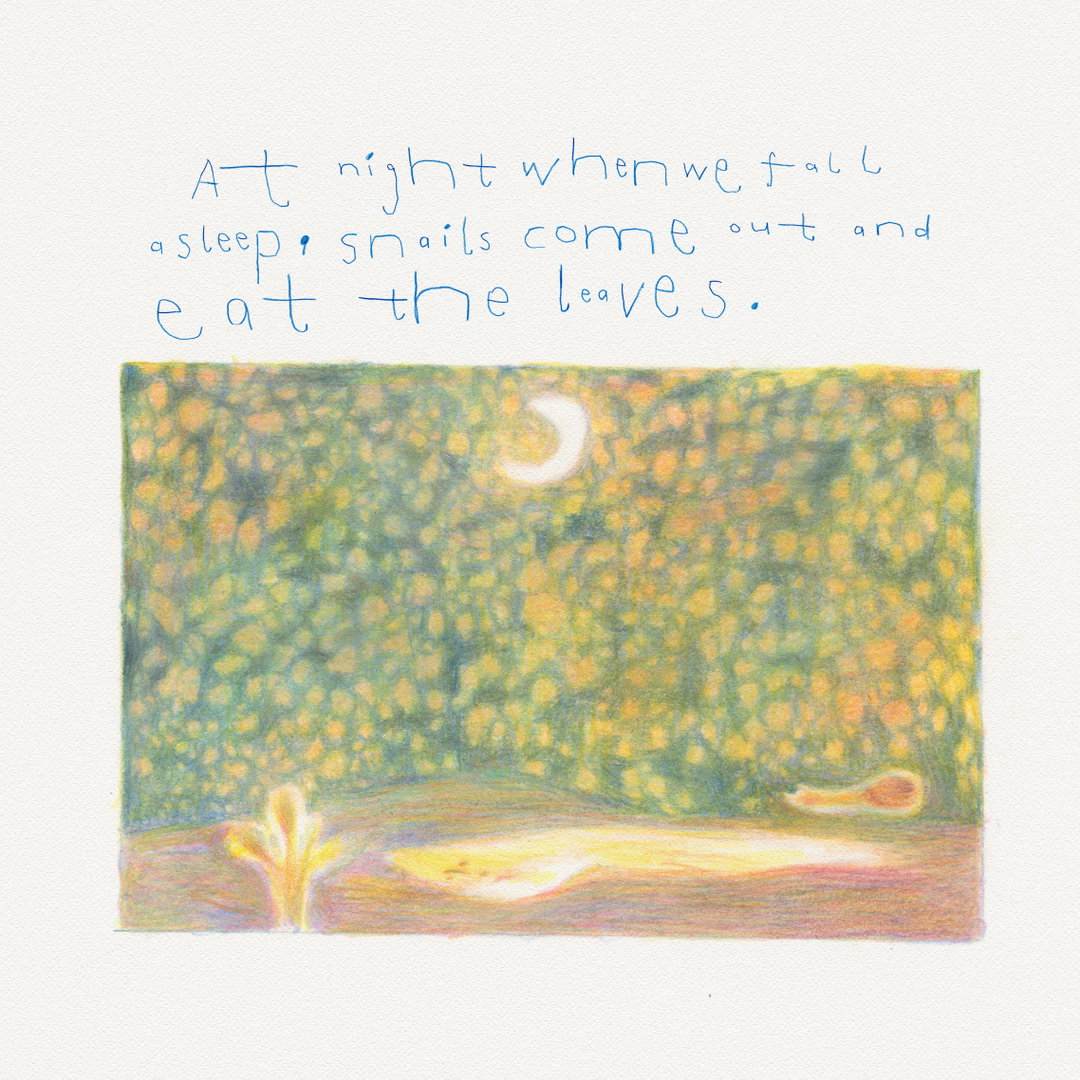 At night when we fall
asleep, snails come out and
eat the leaves.